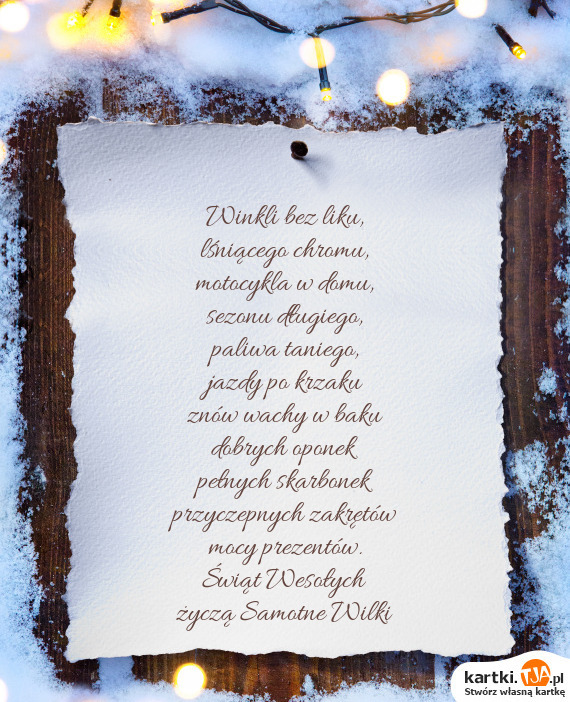 Winkli bez liku,
lśniącego chromu,
motocykla w domu,
sezonu długiego,
paliwa taniego,
jazdy po krzaku
znów wachy w baku
dobrych oponek
pełnych skarbonek
przyczepnych zakrętów
mocy prezentów.
Świąt Wesołych
życzą Samotne Wilki
kartki.TJA.pl
Stwórz własną kartkę